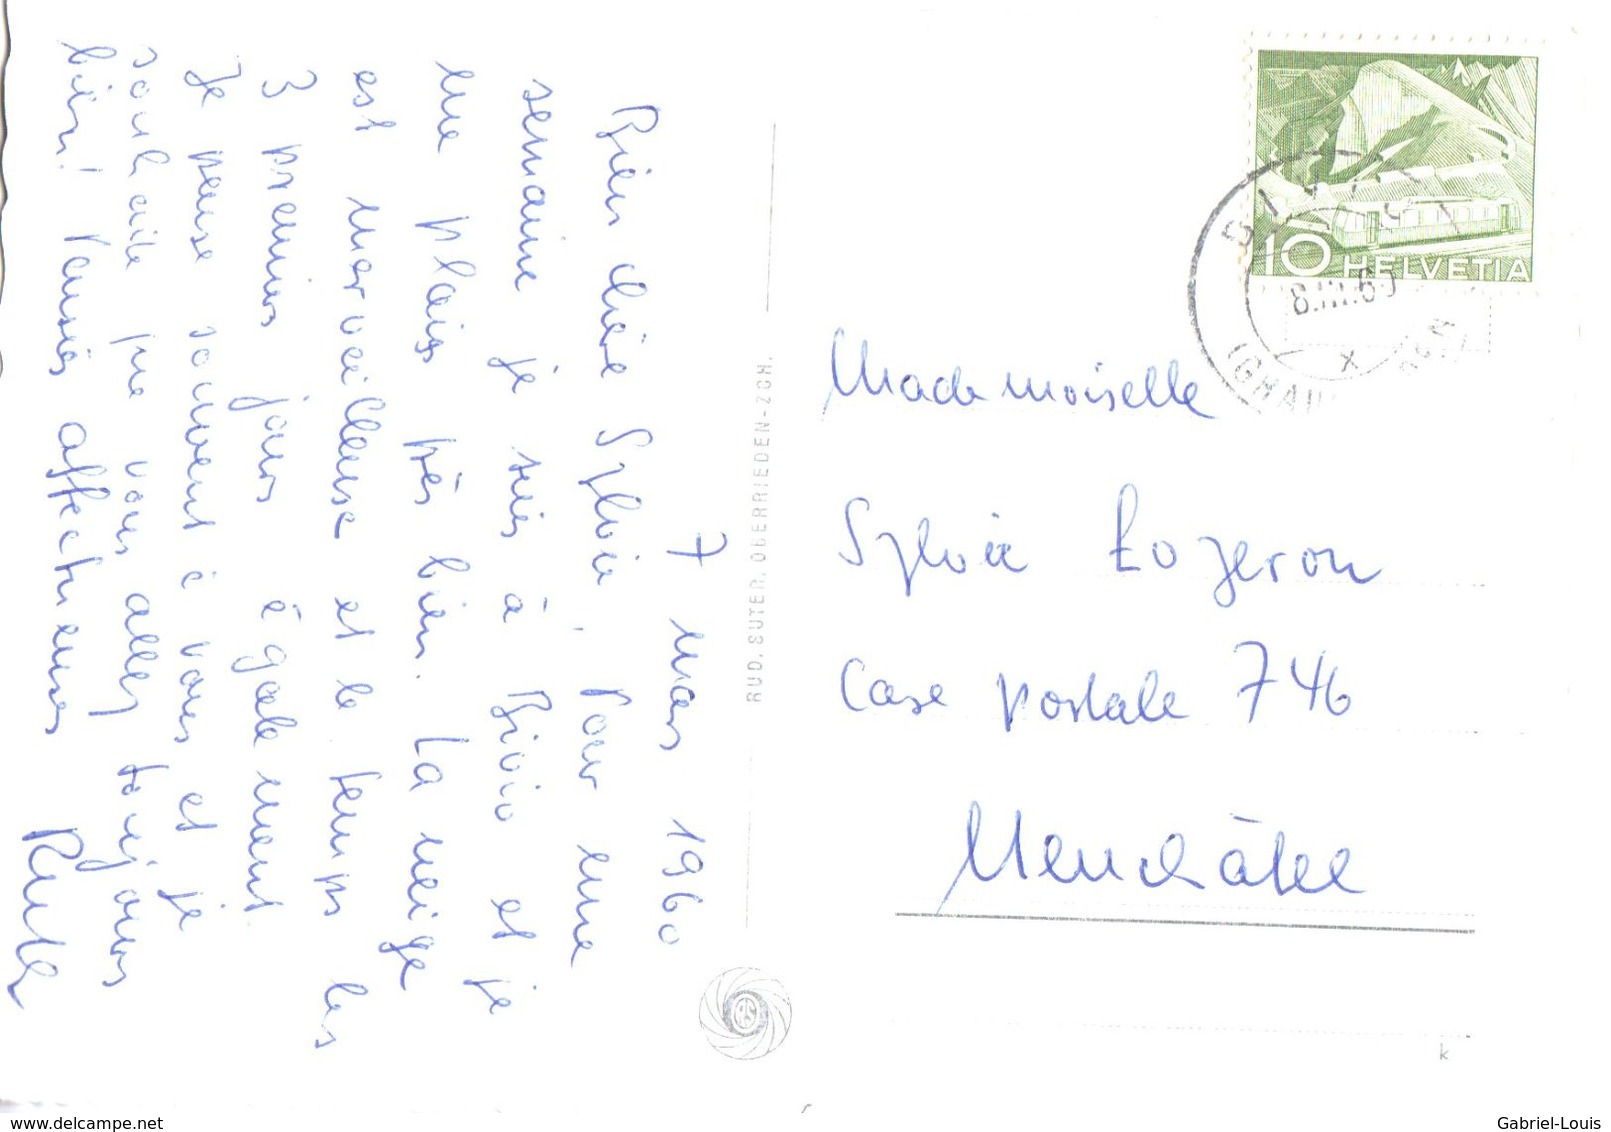 7 mars 1960
Bien chère Sylvia, Pour une
semaine je suis à Bivio et je
me plais très bien. La neige
est merveilleuse et le temps les
3 premiers jours également
Je pense souvent à vous et je
souhaite que vous allez toujours
bien! Pensées affectueuses
Ruth
RUD. SUTER, OBERRIEDEN-ZCH.
10 HELVETIA
BIVIO
8.III.60
X
Mademoiselle
Sylvia Lozeron
Case postale 746
Neuchâtel
k
delcampe.net
Gabriel-Louis